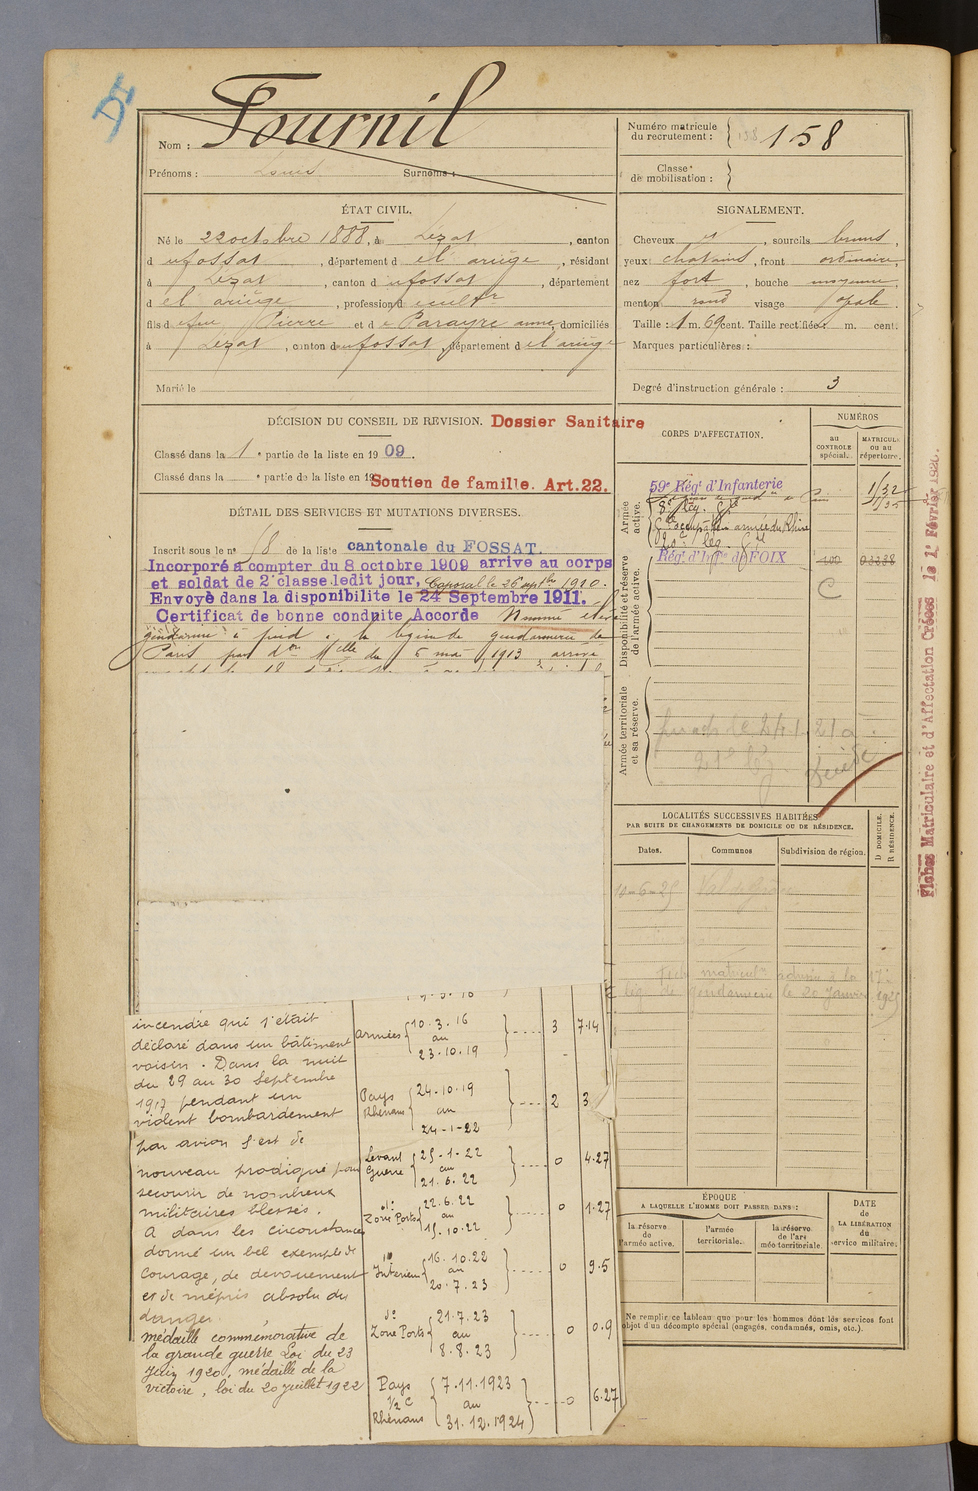 Fournil
Nom :
Prénoms : Louis Surnoms :
Numéro matricule
du recrutement : 158
Classe
de mobilisation :
ÉTAT CIVIL.
Né le 22 octobre 1888, à Lézat, canton
d u fossat, département d el ariège, résidant
à Lézat, canton d u fossat, département
d el ariège, profession d cultr
fils d e feu Pierre et d e Parayre anne, domiciliés
à Lezat, canton d u fossat, département d el ariège
Marié le
SIGNALEMENT.
Cheveux et, sourcils bruns,
yeux chatains, front ordinaire,
nez fort, bouche moyenne,
menton rond visage ovale
Taille : 1 m. 69 cent. Taille rectifiée : m. cent.
Marques particulières :
Degré d'instruction générale : 3
DÉCISION DU CONSEIL DE REVISION. Dossier Sanitaire
Classé dans la 1e partie de la liste en 1909.
Classé dans la e partie de la liste en 19
Soutien de famille. Art. 22.
DÉTAIL DES SERVICES ET MUTATIONS DIVERSES.
Inscrit sous le n° 58 de la liste cantonale du FOSSAT.
Incorporé à compter du 8 octobre 1909 arrivé au corps
et soldat de 2e classe ledit jour, Caporal le 26 septbre 1910.
Envoyé dans la disponibilité le 24 Septembre 1911.
Certificat de bonne conduite Accordé Nommé élève
gendarme à pied à la légion de gendarmerie de
Paris par don Melle du 5 mai 1913 arrivé
CORPS D'AFFECTATION.
NUMÉROS
au
CONTROLE
spécial.
MATRICULE
ou au
répertoire.
Armée
active.
59e Régt d'Infanterie
Régt d'Inf.ie de FOIX
C
Disponibilité et réserve
de l'armée active.
Armée territoriale
et sa réserve.
LOCALITÉS SUCCESSIVES HABITÉES
PAR SUITE DE CHANGEMENTS DE DOMICILE OU DE RÉSIDENCE.
Dates.
Communes
Subdivision de région.
D DOMICILE.
R RÉSIDENCE.
10-6-25
de gendarmerie le 20 Janvier 1925
Fiches Matriculaire et d'Affectation Créées le 1er Février 1926.
incendie qui s'était
déclaré dans un bâtiment
voisin. Dans la nuit
du 29 au 30 septembre
1917 pendant un
violent bombardement
par avion s'est de
nouveau prodigué pour
secourir de nombreux
militaires blessés.
A dans les circonstances
donné un bel exemple de
courage, de dévouement
et de mépris absolu du
danger.
médaille commémorative de
la grande guerre Loi du 23
Juin 1920, médaille de la
victoire, loi du 20 juillet 1922
armées 10.3.16 au 23.10.19 3 7.14
Pays Rhénans 24.10.19 au 24-1-22 2 3
Levant Guerre 25-1-22 au 21.6.22 0 4.27
do Zone Ports 22.6.22 au 15.10.22 0 1.27
Intérieur 16.10.22 au 20.7.23 0 9.5
do Zone Ports 21.7.23 au 8.8.23 0 0.9
Pays 1/2 C Rhénans 7.11.1923 au 31.12.1924 0 6.27
ÉPOQUE
A LAQUELLE L'HOMME DOIT PASSER DANS :
la réserve
de
l'armée active.
l'armée
territoriale.
la réserve
de l'ar-
mée territoriale.
DATE
de
LA LIBÉRATION
du
service militaire.
Ne remplir ce tableau que pour les hommes dont les services font
l'objet d'un décompte spécial (engagés, condamnés, omis, etc.).